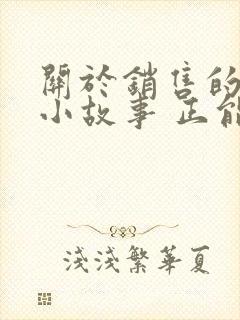 關於銷售的
小故事 正能
淺淺繁華夏